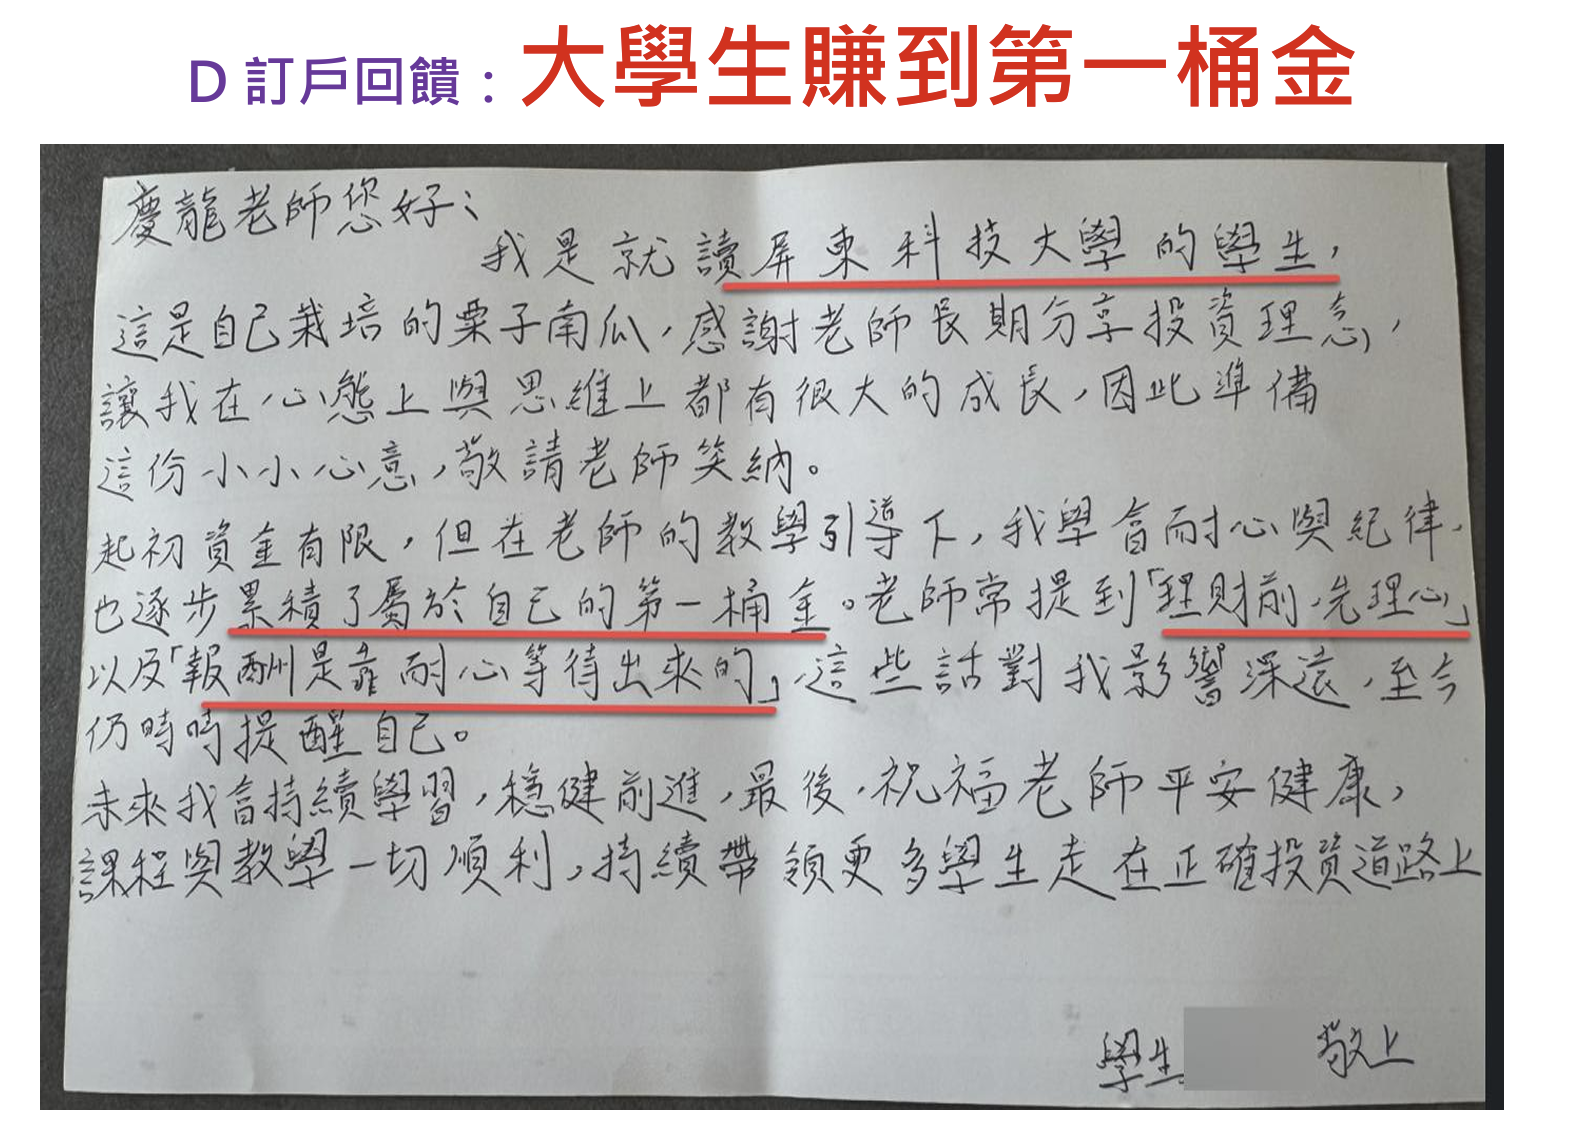 D 訂戶回饋：大學生賺到第一桶金
慶龍老師您好：
我是就讀屏東科技大學的學生，
這是自己栽培的栗子南瓜，感謝老師長期分享投資理念，
讓我在心態上與思維上都有很大的成長，因此準備
這份小小心意，敬請老師笑納。
起初資金有限，但在老師的教學引導下，我學會耐心與紀律，
也逐步累積了屬於自己的第一桶金。老師常提到「理財前，先理心」
以及「報酬是靠耐心等待出來的」，這些話對我影響深遠，至今
仍時時提醒自己。
未來我會持續學習，穩健前進，最後，祝福老師平安健康，
課程與教學一切順利，持續帶領更多學生走在正確投資道路上
學生 敬上